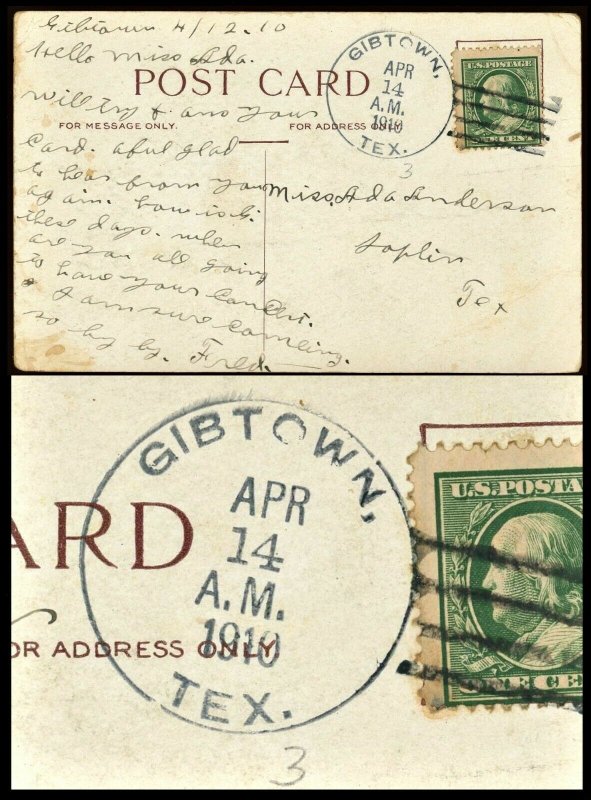 Gibtown 4/12.10
Hello Miss Ada.
POST CARD
will try & ans your
FOR MESSAGE ONLY. FOR ADDRESS ONLY.
Card. aful glad
to hear from you
again. how is
these days. when
are you all going
to have your Concert.
I am sure comeing.
so by by. Fred.
GIBTOWN,
APR
14
A.M.
1910
TEX.
3
U.S. POSTAGE
Miss. Ada Anderson
Joplin
Tex
GIBTOWN,
APR
14
A.M.
1910
TEX.
3
ARD
OR ADDRESS ONLY
U.S. POSTA
E CE